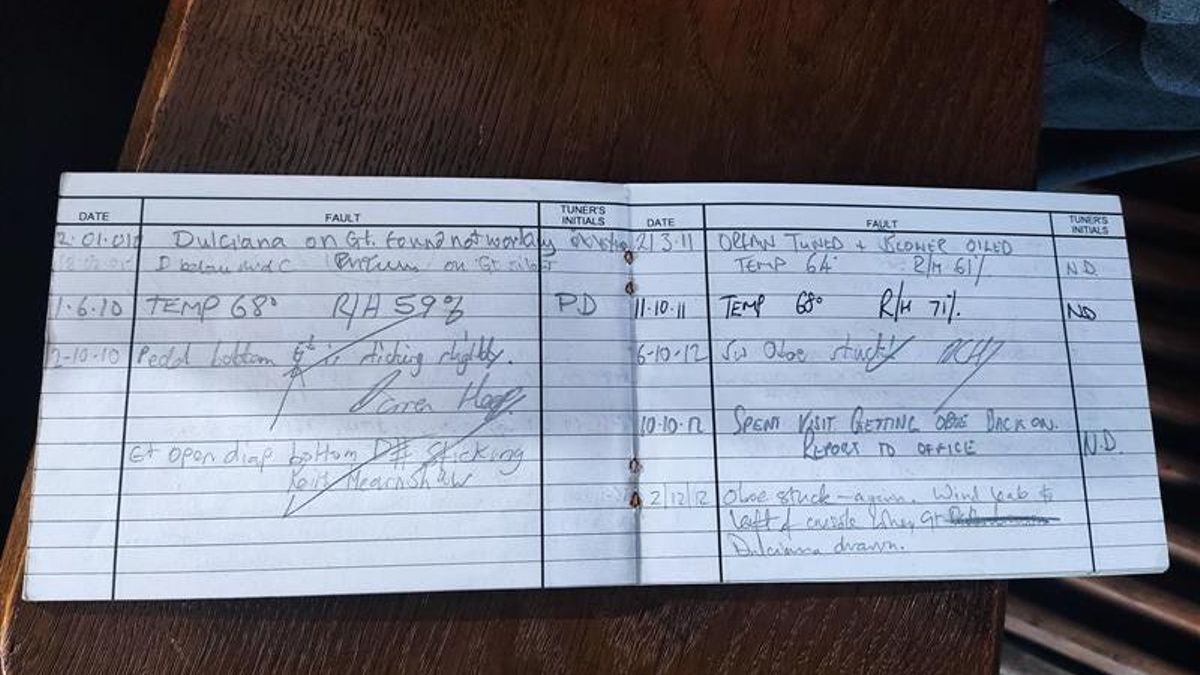 DATE FAULT TUNER'S INITIALS
Dulciana on Gt. found not working
D below mid C on Gt
1.6.10 TEMP 68° R/H 59% PD
2-10-10 Pedal bottom is sticking slightly.
Gt open diap bottom D# sticking
Keith Mearnshaw
DATE FAULT TUNER'S INITIALS
2/3.11 ORGAN TUNED + BLOWER OILED
TEMP 64° R/H 61% N.D.
11.10.11 TEMP 68° R/H 71%. ND
6-10-12 Sw Oboe stuck
10.10.12 SPENT VISIT GETTING OBOE BACK ON.
REPORT TO OFFICE N.D.
2/12/12 Oboe stuck - again. Wind leak to
left of console when Gt
Dulciana drawn.